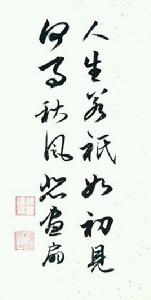 人生若祇如初見
何事秋風悲畫扇